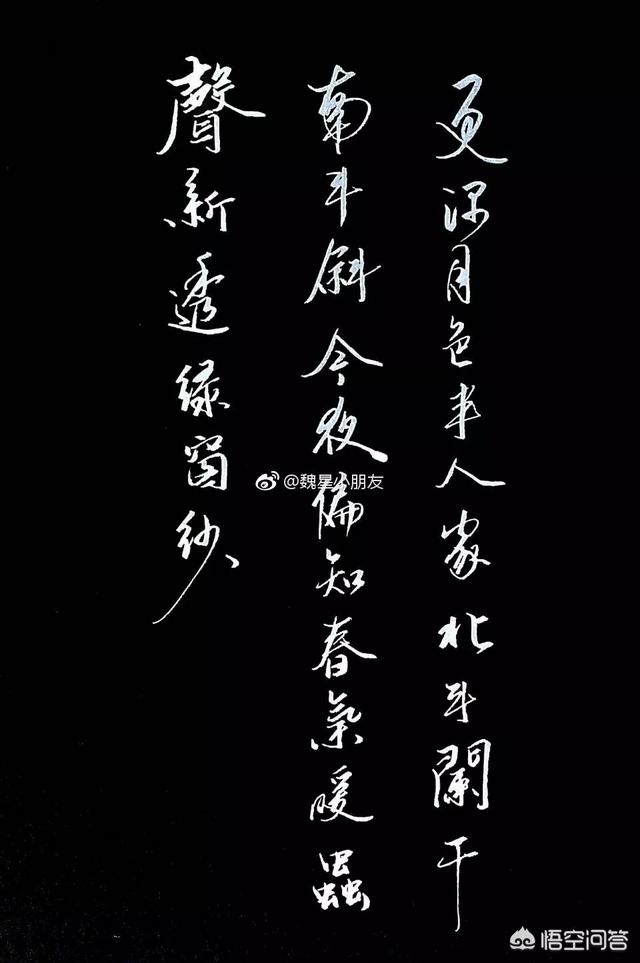 更深月色半人家北斗闌干
南斗斜今夜偏知春氣暖蟲
聲新透綠窗紗
@魏星小朋友
悟空问答